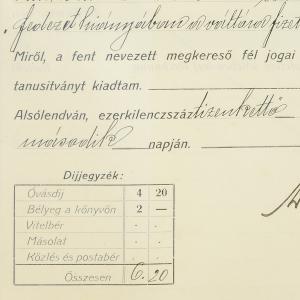 fedezet hiányában a váltóra fizet
Miről, a fent nevezett megkereső fél jogai
tanusitványt kiadtam.
Alsólendván, ezerkilenczszáz tizenkettő
második napján.
Dijjegyzék:
Óvásdíj 4 20
Bélyeg a könyvön 2 —
Vitelbér . .
Másolat . .
Közlés és postabér . .
Összesen 6. 20